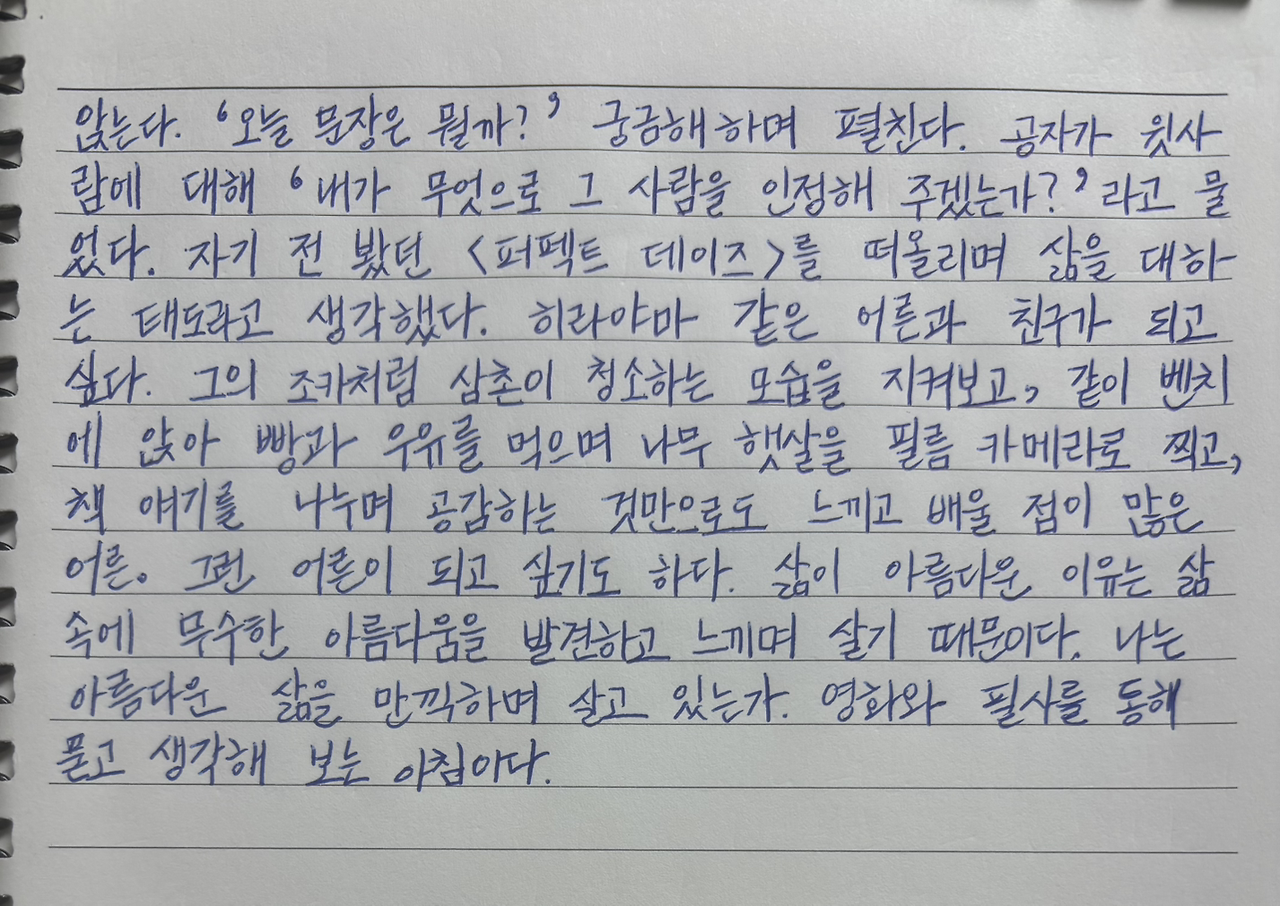 앉는다. ‘오늘 문장은 뭘까?’ 궁금해하며 펼친다. 공자가 윗사
람에 대해 ‘내가 무엇으로 그 사람을 인정해 주겠는가?’라고 물
었다. 자기 전 봤던 <퍼펙트 데이즈>를 떠올리며 삶을 대하
는 태도라고 생각했다. 히라야마 같은 어른과 친구가 되고
싶다. 그의 조카처럼 삼촌이 청소하는 모습을 지켜보고, 같이 벤치
에 앉아 빵과 우유를 먹으며 나무 햇살을 필름 카메라로 찍고,
책 얘기를 나누며 공감하는 것만으로도 느끼고 배울 점이 많은
어른. 그런 어른이 되고 싶기도 하다. 삶이 아름다운 이유는 삶
속에 무수한 아름다움을 발견하고 느끼며 살기 때문이다. 나는
아름다운 삶을 만끽하며 살고 있는가. 영화와 필사를 통해
묻고 생각해 보는 아침이다.